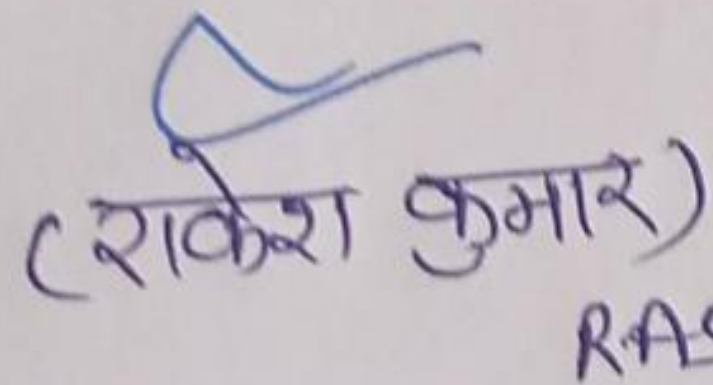 (राकेश कुमार)
R.AS